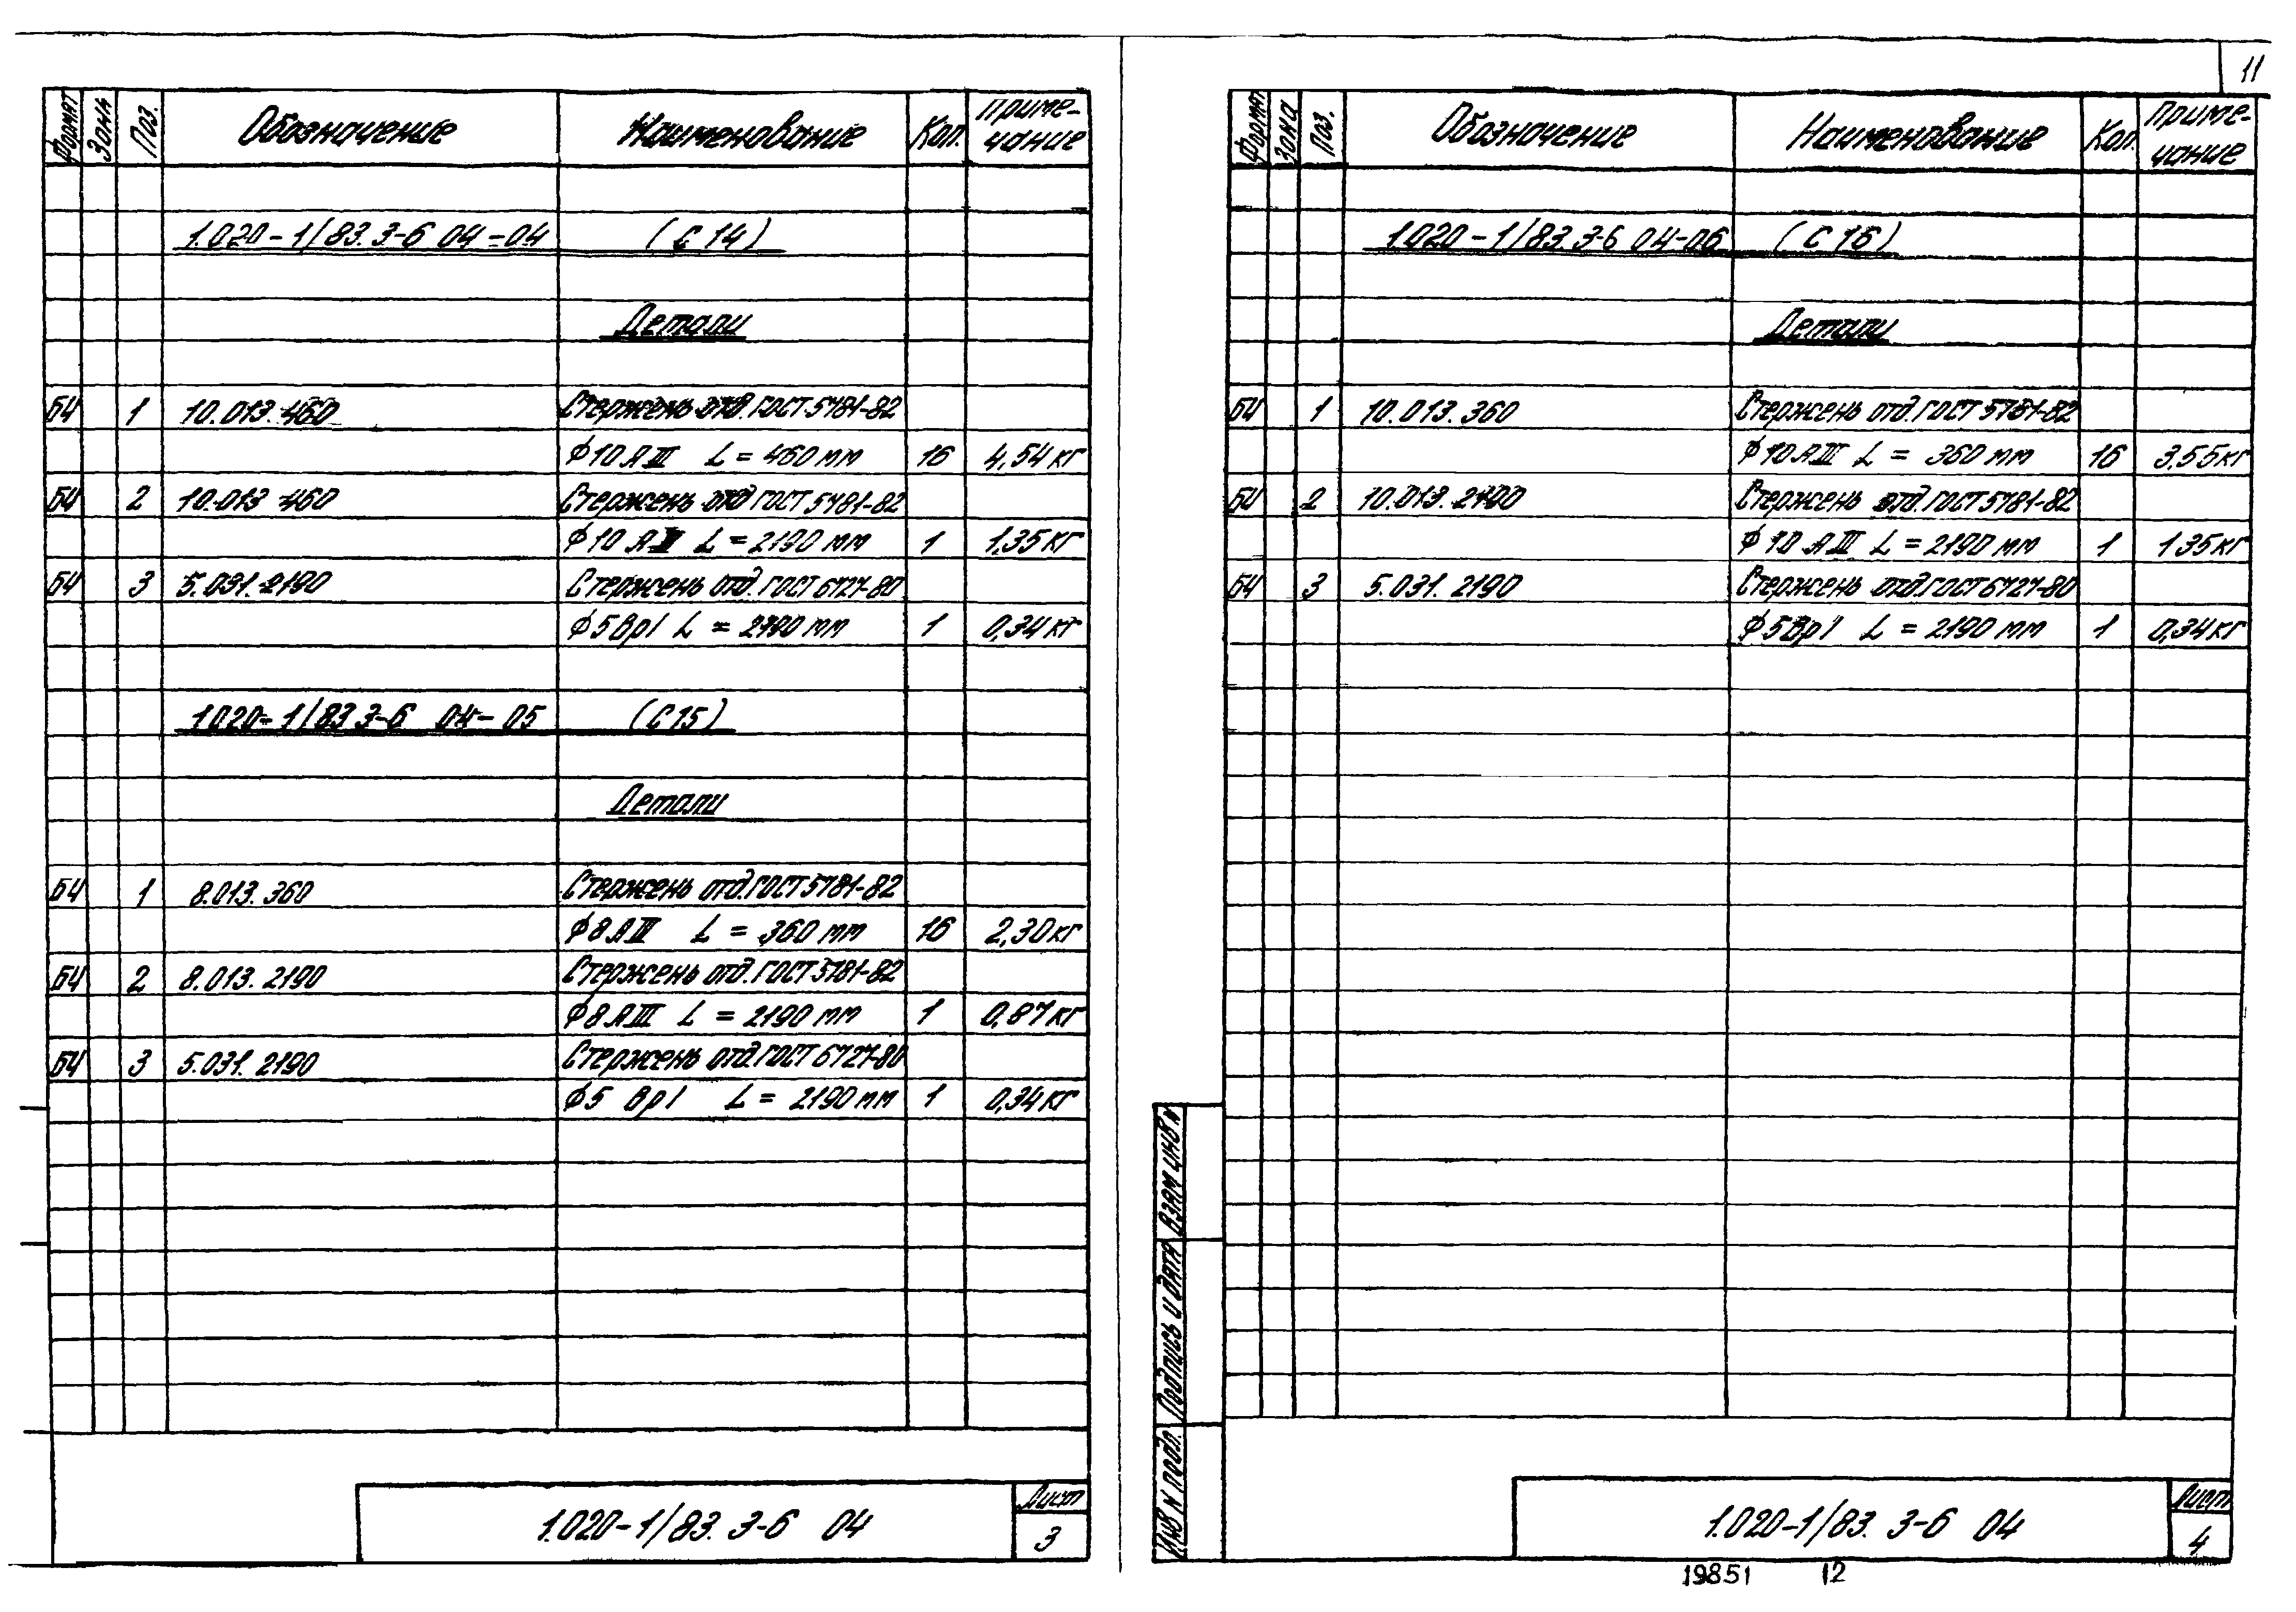 11
Формат Зона Поз. Обозначение Наименование Кол. Приме-чание
1.020-1/83.3-6 04-04 (С14)
Детали
БЧ 1 10.013.460 Стержень отд. ГОСТ 5781-82
Ф10АIII L = 460 мм 16 4,54 кг
БЧ 2 10.013 460 Стержень отд ГОСТ 5781-82
Ф10 АIII L = 2190 мм 1 1,35 кг
БЧ 3 5.031.2190 Стержень отд. ГОСТ 6727-80
Ф5ВрI L = 2190 мм 1 0,34 кг
1.020-1/83 3-6 04-05 (С15)
Детали
БЧ 1 8.013.360 Стержень отд. ГОСТ 5781-82
Ф8АIII L = 360 мм 16 2,30 кг
БЧ 2 8.013.2190 Стержень отд. ГОСТ 5781-82
Ф8АIII L = 2190 мм 1 0,87 кг
БЧ 3 5.031.2190 Стержень отд. ГОСТ 6727-80
Ф5 ВрI L = 2190 мм 1 0,34 кг
1.020-1/83. 3-6 04
Лист
3
Формат Зона Поз. Обозначение Наименование Кол. Приме-чание
1.020-1/83.3-6 04-06 (С16)
Детали
БЧ 1 10.013.360 Стержень отд. ГОСТ 5781-82
Ф10АIII L = 360 мм 16 3,55 кг
БЧ 2 10.013.2190 Стержень отд. ГОСТ 5781-82
Ф10 АIII L = 2190 мм 1 1 35 кг
БЧ 3 5.031.2190 Стержень отд. ГОСТ 6727-80
Ф5ВрI L = 2190 мм 1 0,34 кг
Взам инв N
Подпись и дата
Инв N подл.
1.020-1/83. 3-6 04
Лист
4
19851 12